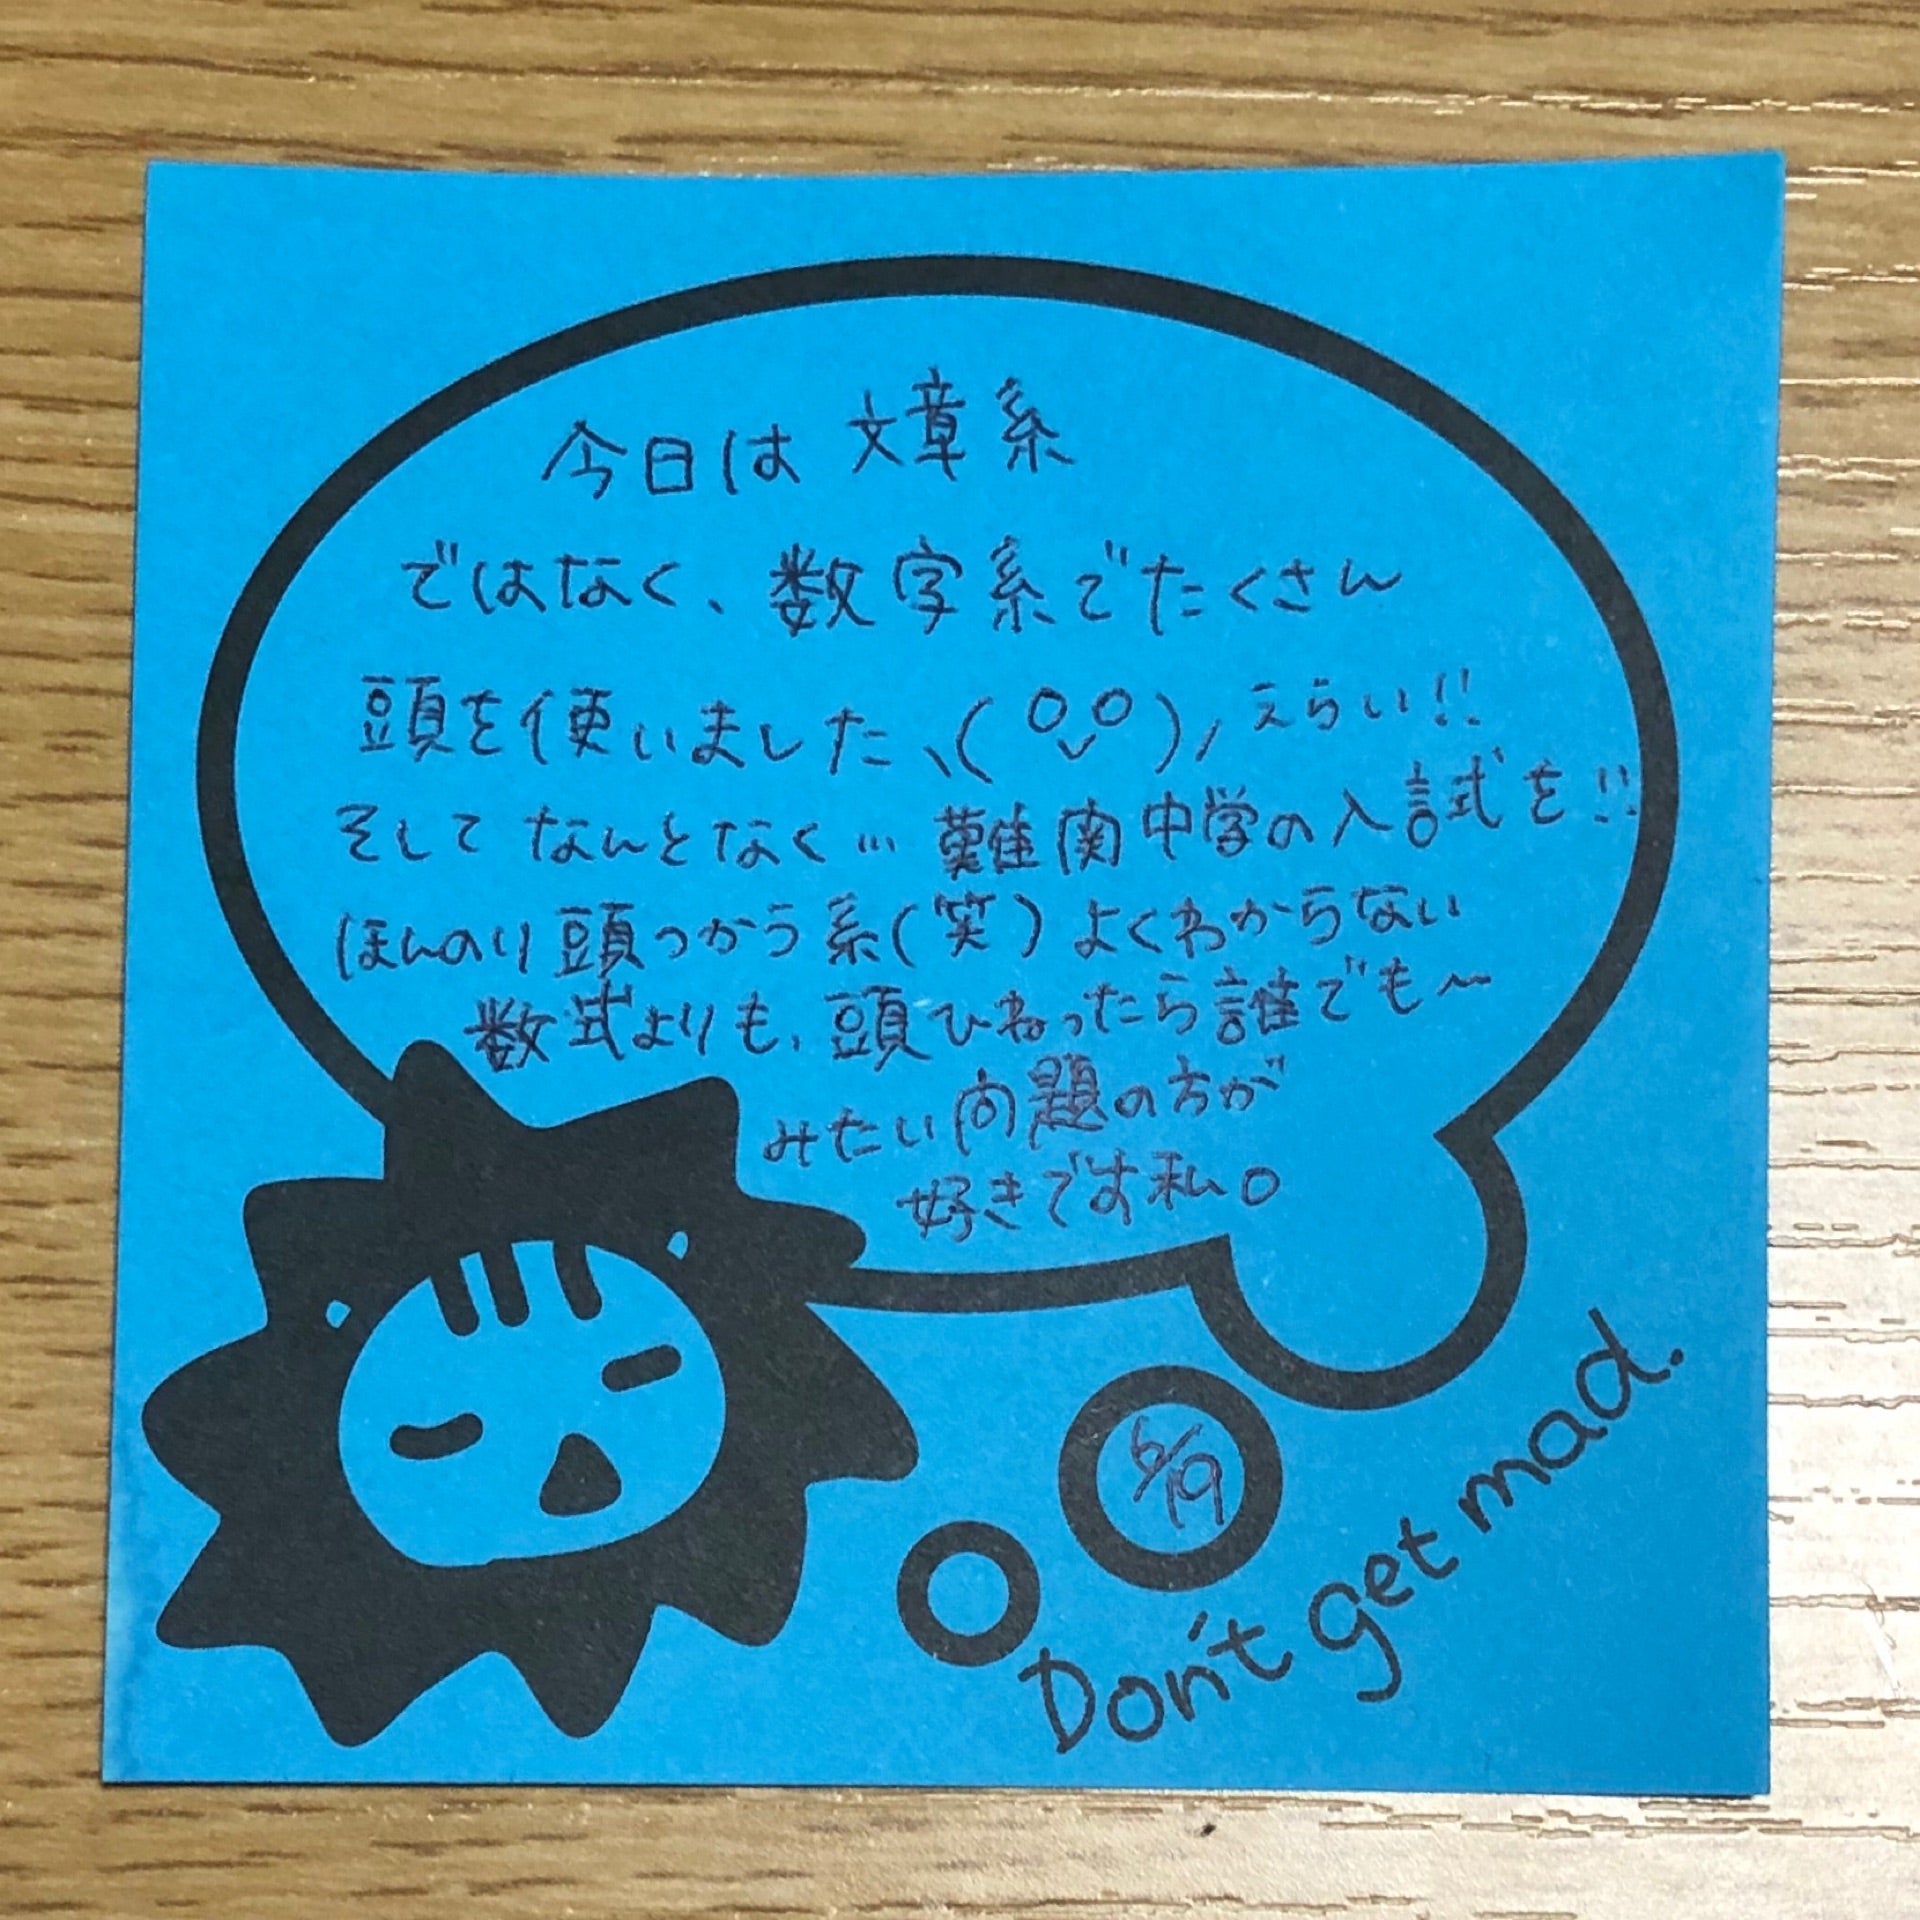 今日は 文章系
ではなく、数字系でたくさん
頭を使いました ヽ( ºᴗº )ノ えらい!!
そして なんとなく… 難関中学の入試を!!
ほんのり頭つかう系(笑) よくわからない
数式よりも、頭ひねったら誰でも〜
みたい問題の方が
好きです私。
6/19
Don't get mad.